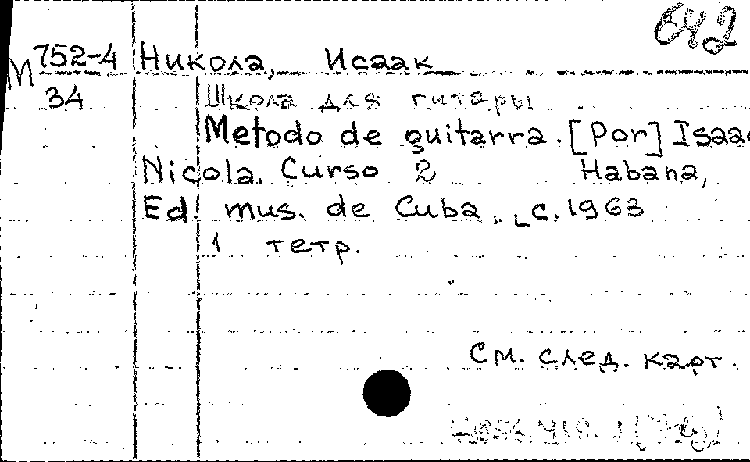 642
М 752-4 Никола, Исаак
34 Школа для гитары
Metodo de guitarra. [Por] Isaac
Nicola. Curso 2 Habana,
Ed. mus. de Cuba, c. 1963
1 тетр.
См. след. карт.